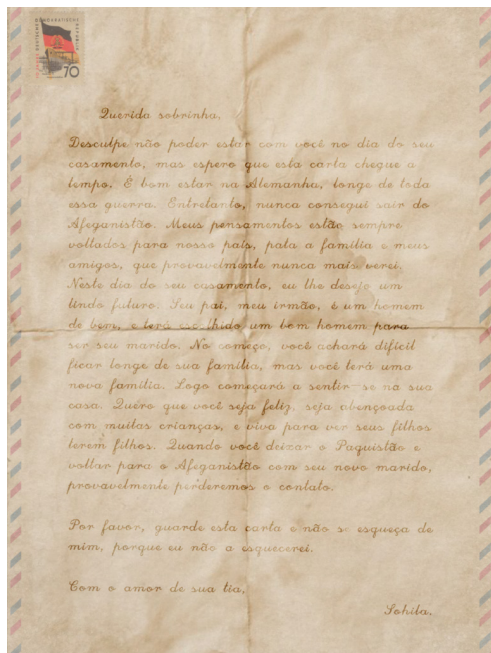 DEUTSCHE DEMOKRATISCHE REPUBLIK
70
Querida sobrinha,
Desculpe não poder estar com você no dia do seu
casamento, mas espero que esta carta chegue a
tempo. É bom estar na Alemanha, longe de toda
essa guerra. Entretanto, nunca consegui sair do
Afeganistão. Meus pensamentos estão sempre
voltados para nosso país, para a família e meus
amigos, que provavelmente nunca mais verei.
Neste dia do seu casamento, eu lhe desejo um
lindo futuro. Seu pai, meu irmão, é um homem
de bem, e terá escolhido um bom homem para
ser seu marido. No começo, você achará difícil
ficar longe de sua família, mas você terá uma
nova família. Logo começará a sentir-se na sua
casa. Quero que você seja feliz, seja abençoada
com muitas crianças, e viva para ver seus filhos
terem filhos. Quando você deixar o Paquistão e
voltar para o Afeganistão com seu novo marido,
provavelmente perderemos o contato.
Por favor, guarde esta carta e não se esqueça de
mim, porque eu não a esquecerei.
Com o amor de sua tia,
Sohila.